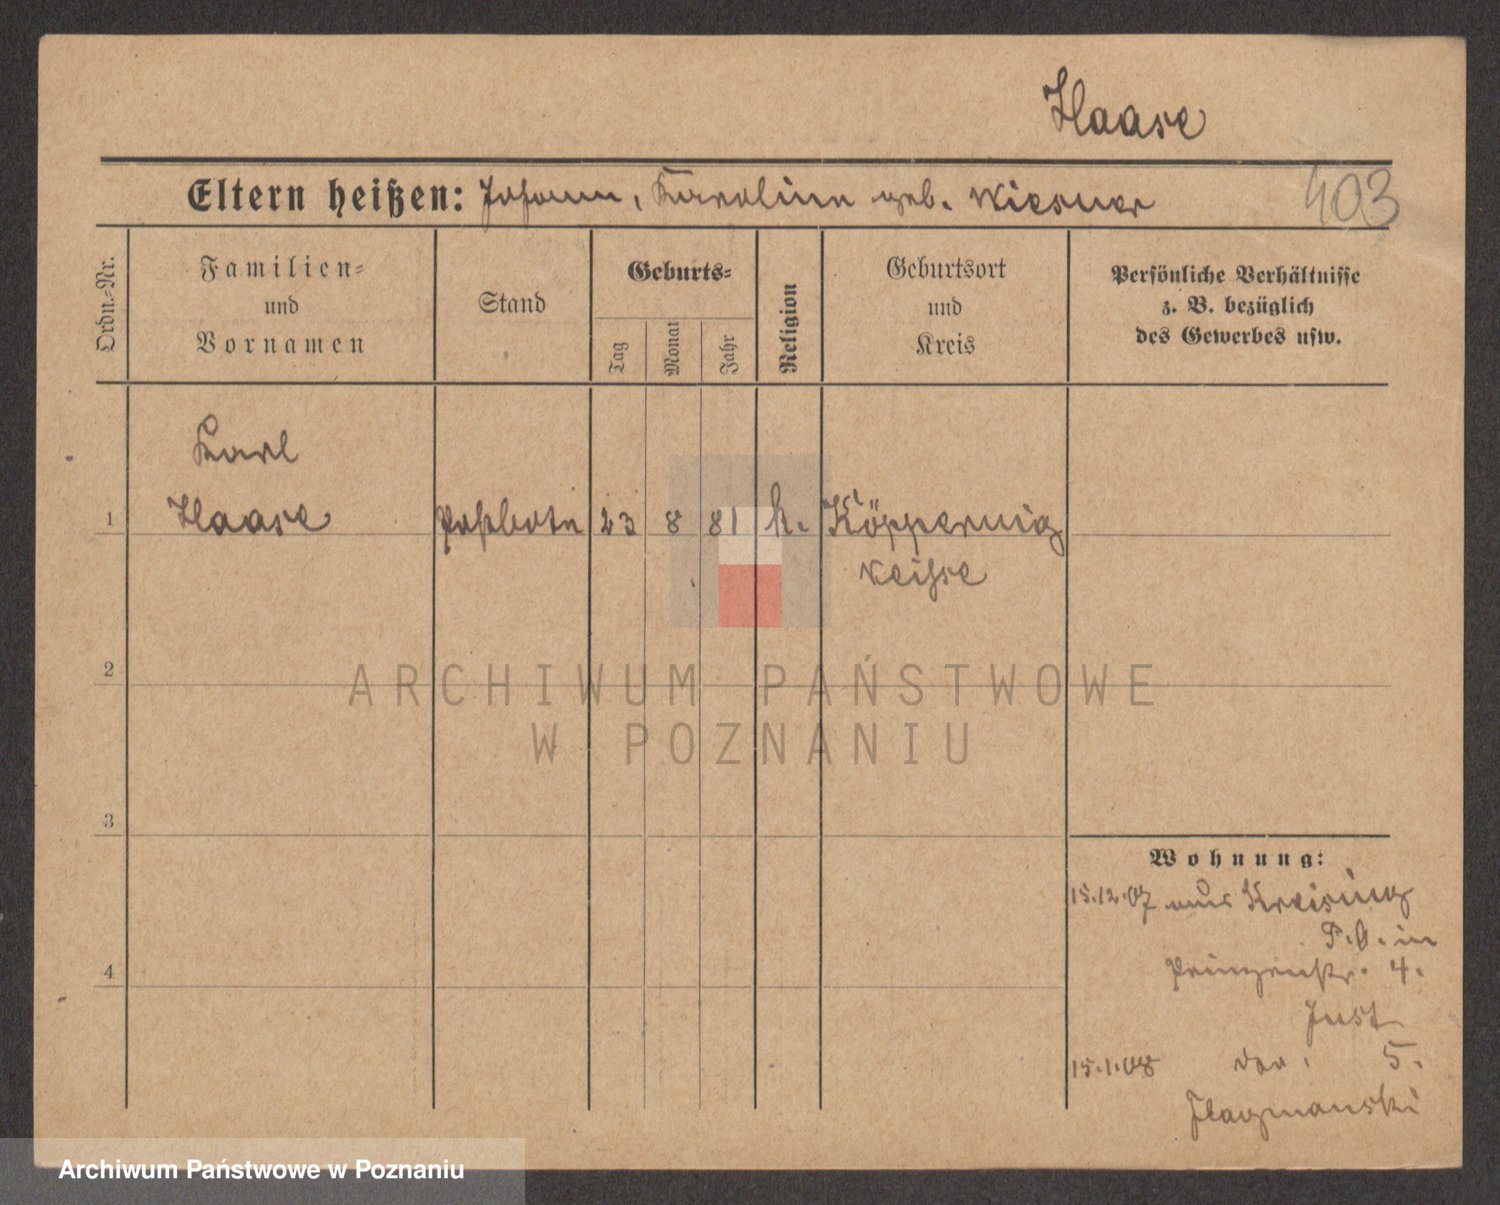 Haase
Eltern heißen: Johann, Karoline geb. Wiesner
403
Ordn.-Nr.
Familien-
und
Vornamen
Stand
Geburts-
Tag
Monat
Jahr
Religion
Geburtsort
und
Kreis
Persönliche Verhältnisse
z. B. bezüglich
des Gewerbes usw.
Karl
1 Haase Postbote 23 8 81 k. Köppernig
Neisse
2
ARCHIWUM PAŃSTWOWE
W POZNANIU
3
Wohnung:
15.12.07 aus Kreising
P.O. in
Prinzenstr. 4.
Just
4
15.1.08 5.
Archiwum Państwowe w Poznaniu